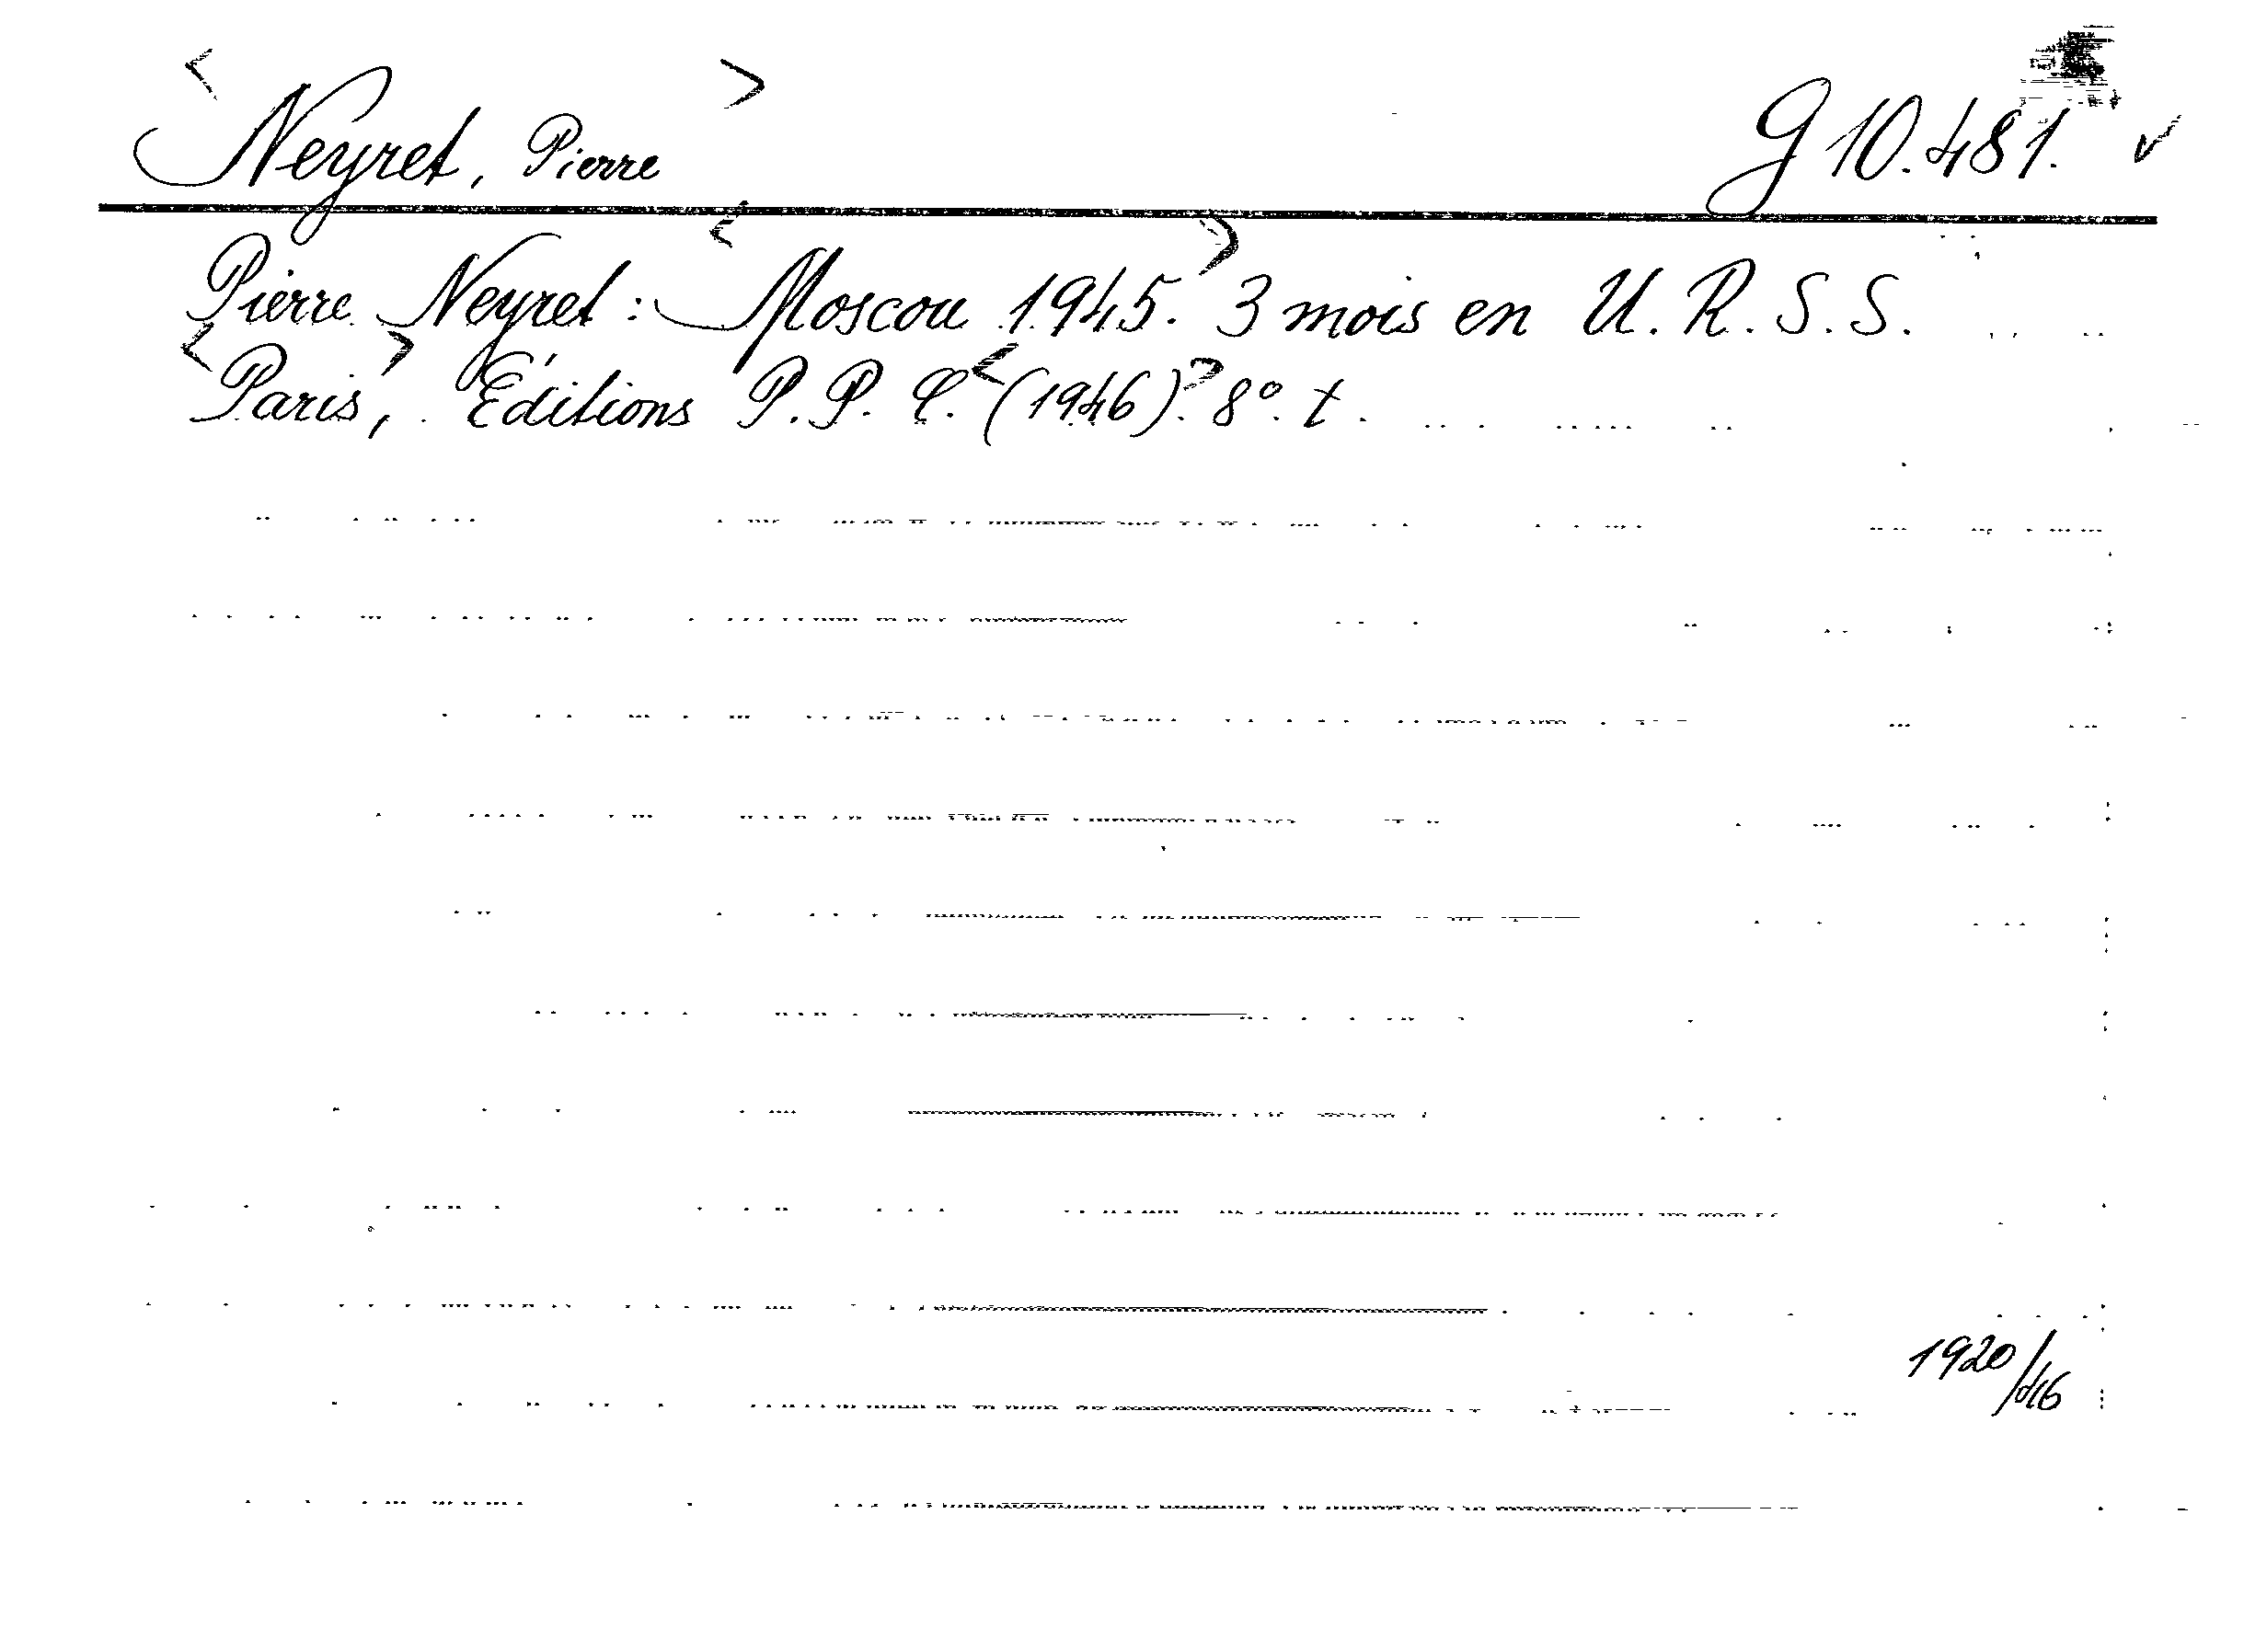 <Neyret, Pierre> G 10.481. ✓
Pierre Neyret: <Moscou 1945.> 3 mois en U.R.S.S.
<Paris>, Éditions P.P.C. <(1946).> 8°. t.
1920/46